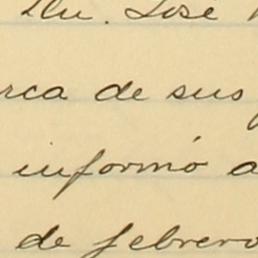 Ilu. José
rca de sus
informó a
de febrero